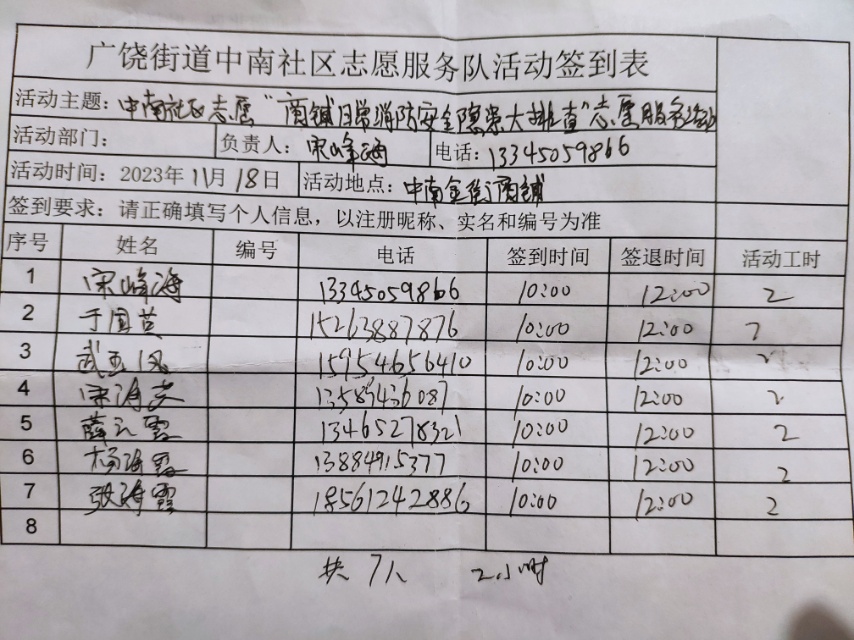 广饶街道中南社区志愿服务队活动签到表
活动主题：中南社区志愿“商铺日常消防安全隐患大排查”志愿服务活动
活动部门： 负责人：宋峰海 电话：13345059866
活动时间：2023年11月18日 活动地点：中南金街商铺
签到要求：请正确填写个人信息，以注册昵称、实名和编号为准
序号 姓名 编号 电话 签到时间 签退时间 活动工时
1 宋峰海 13345059866 10:00 12:00 2
2 于国英 15263887876 10:00 12:00 2
3 武玉凤 15954656410 10:00 12:00 2
4 宋海文 13589436087 10:00 12:00 2
5 薛云霞 13465278321 10:00 12:00 2
6 杨海霞 13884915377 10:00 12:00 2
7 张海霞 18561242886 10:00 12:00 2
8
共7人 2小时